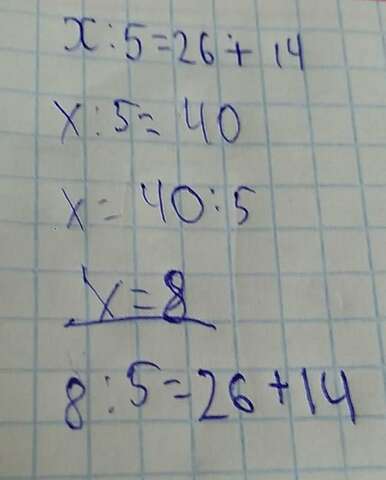 x:5=26+14
x:5=40
x=40:5
x=8
8:5=26+14